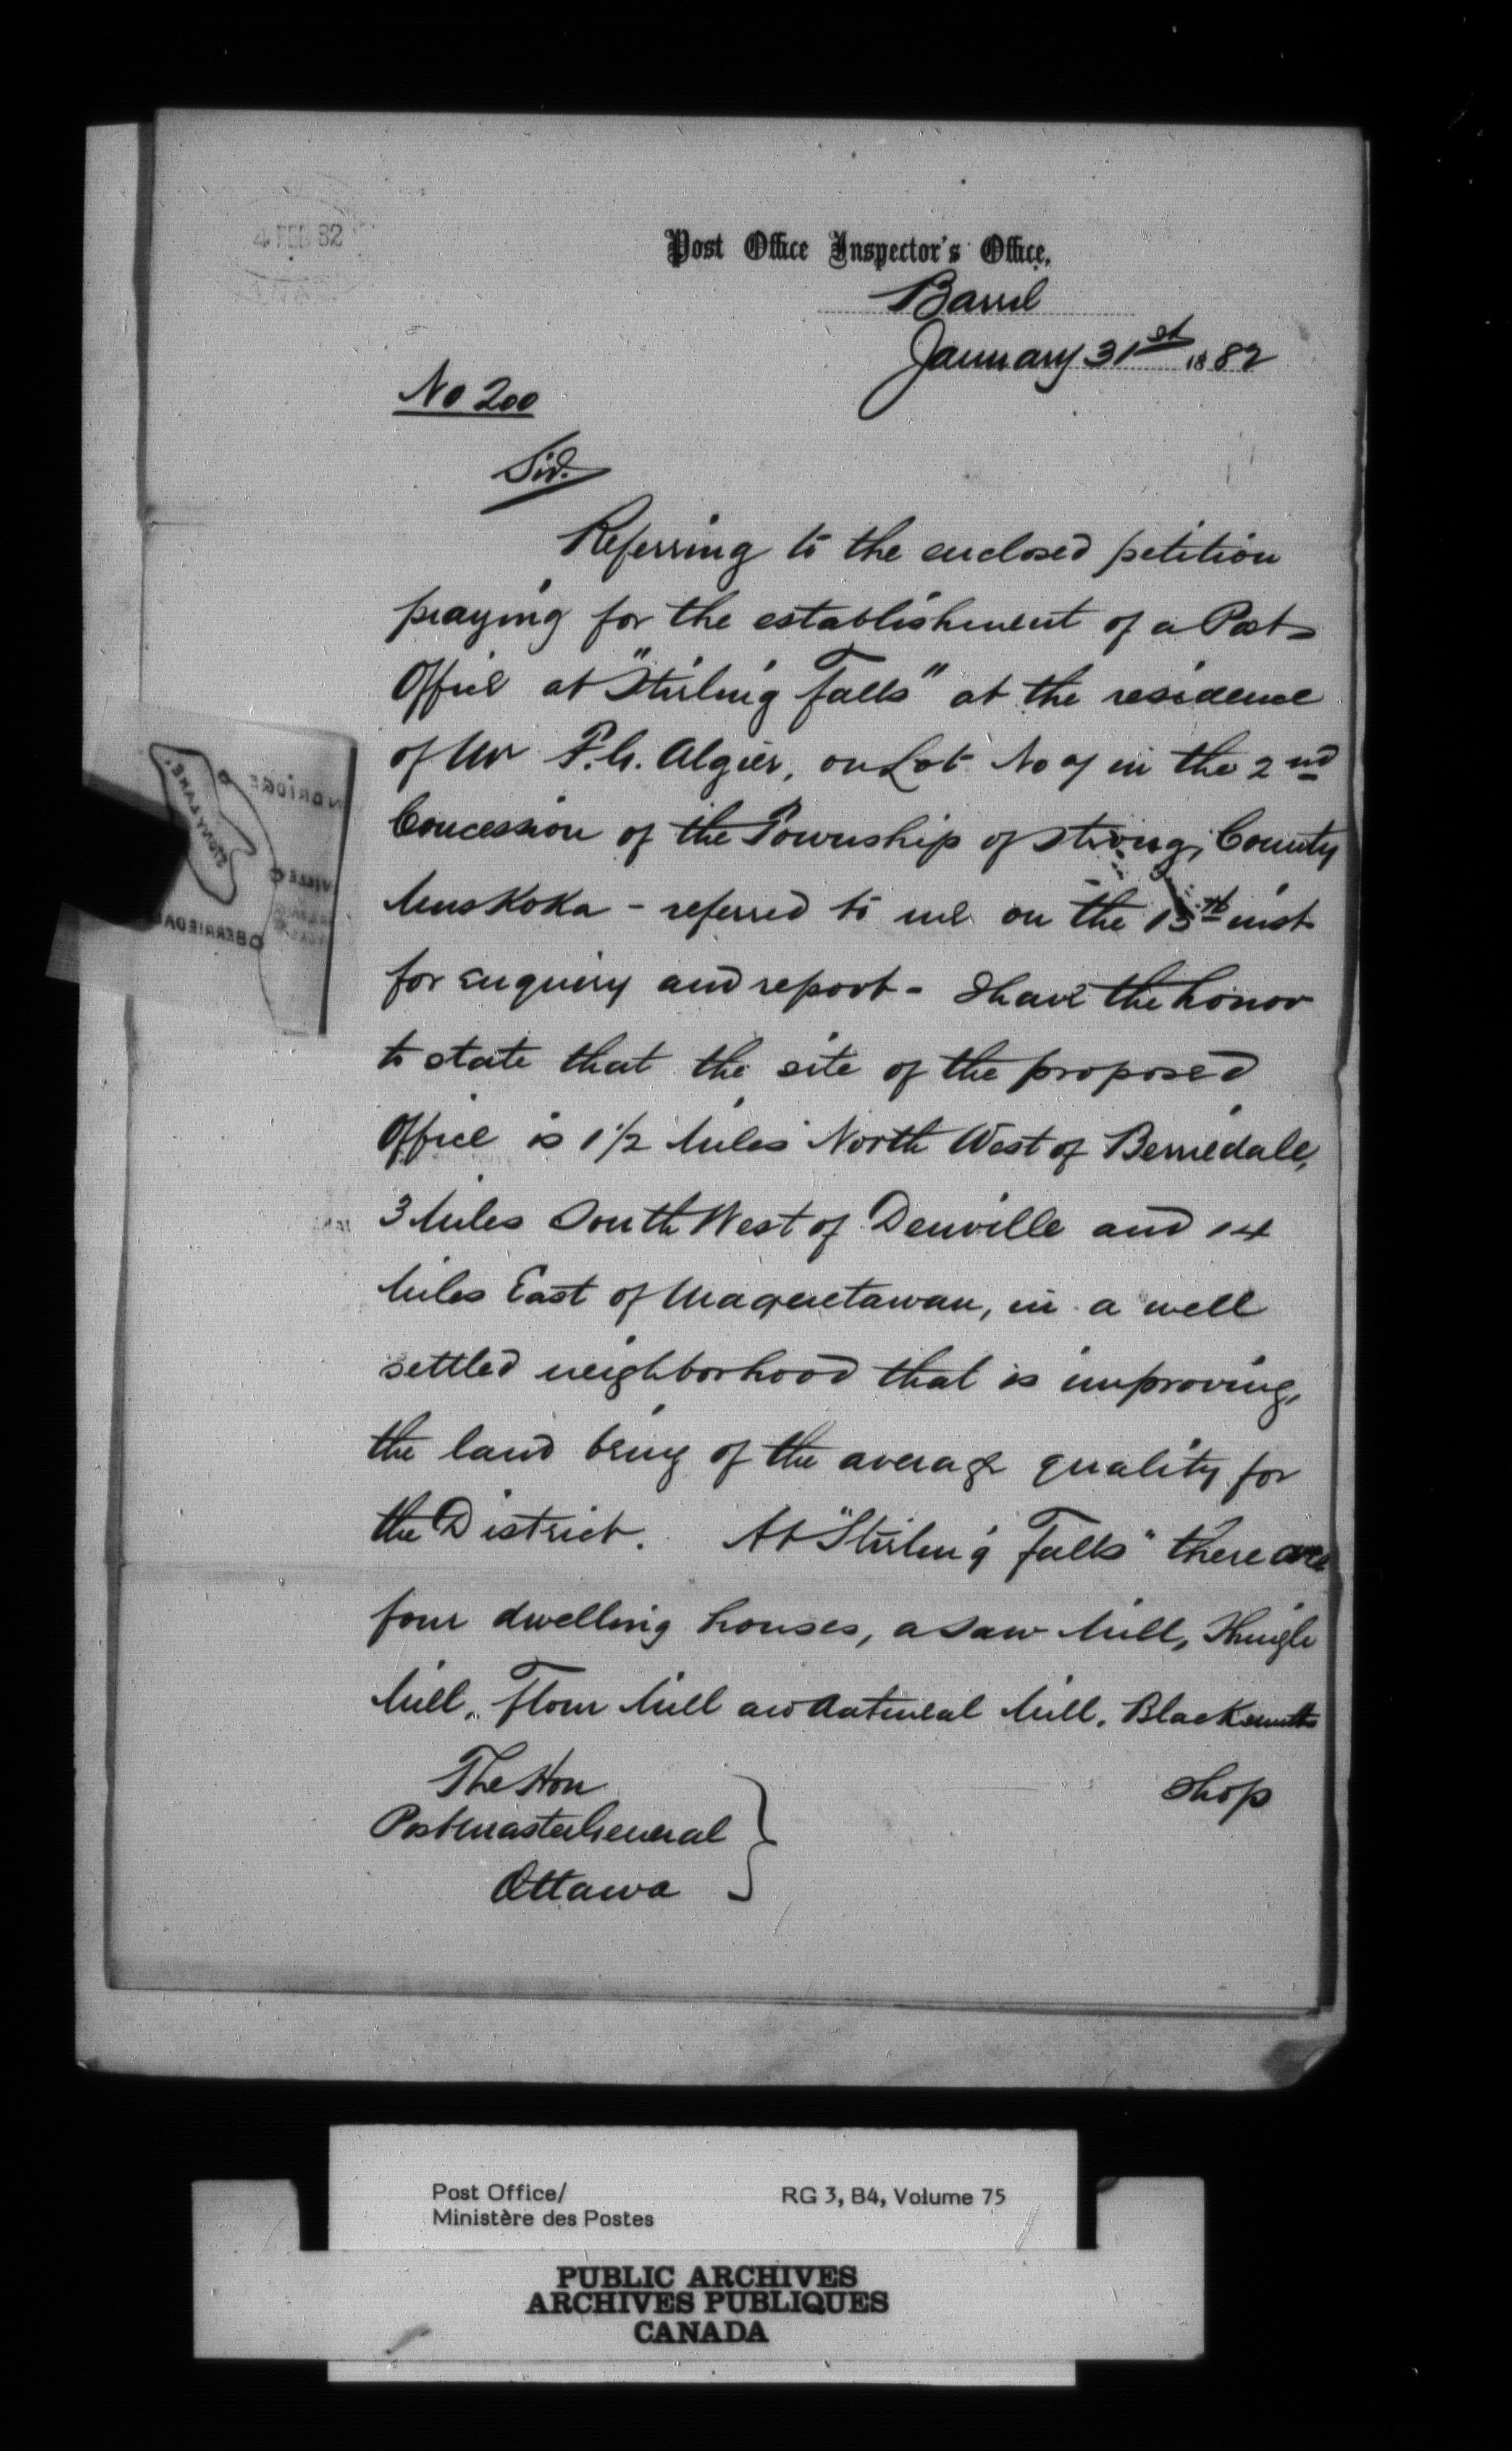 4 FEB 82
Post Office Inspector's Office,
Barrie
January 31st 1882
No 200
Sir.
Referring to the enclosed petition
praying for the establishment of a Post
Office at "Stirling Falls" at the residence
of Mr F.G. Algier, on Lot No 7 in the 2nd
Concession of the Township of Strong, County
Muskoka - referred to me on the 13th inst
for enquiry and report - I have the honor
to state that the site of the proposed
Office is 1 1/2 Miles North West of Berriedale,
3 Miles South West of Denville and 14
Miles East of Maganetawan, in a well
settled neighborhood that is improving,
the land being of the average quality for
the District. At "Stirling Falls" there are
four dwelling houses, a saw Mill, Shingle
Mill, Flour Mill and Oatmeal Mill, Blacksmiths
shop
The Hon
Postmaster General
Ottawa
STONY LAKE
BERRIEDALE
Post Office/
Ministère des Postes
RG 3, B4, Volume 75
PUBLIC ARCHIVES
ARCHIVES PUBLIQUES
CANADA